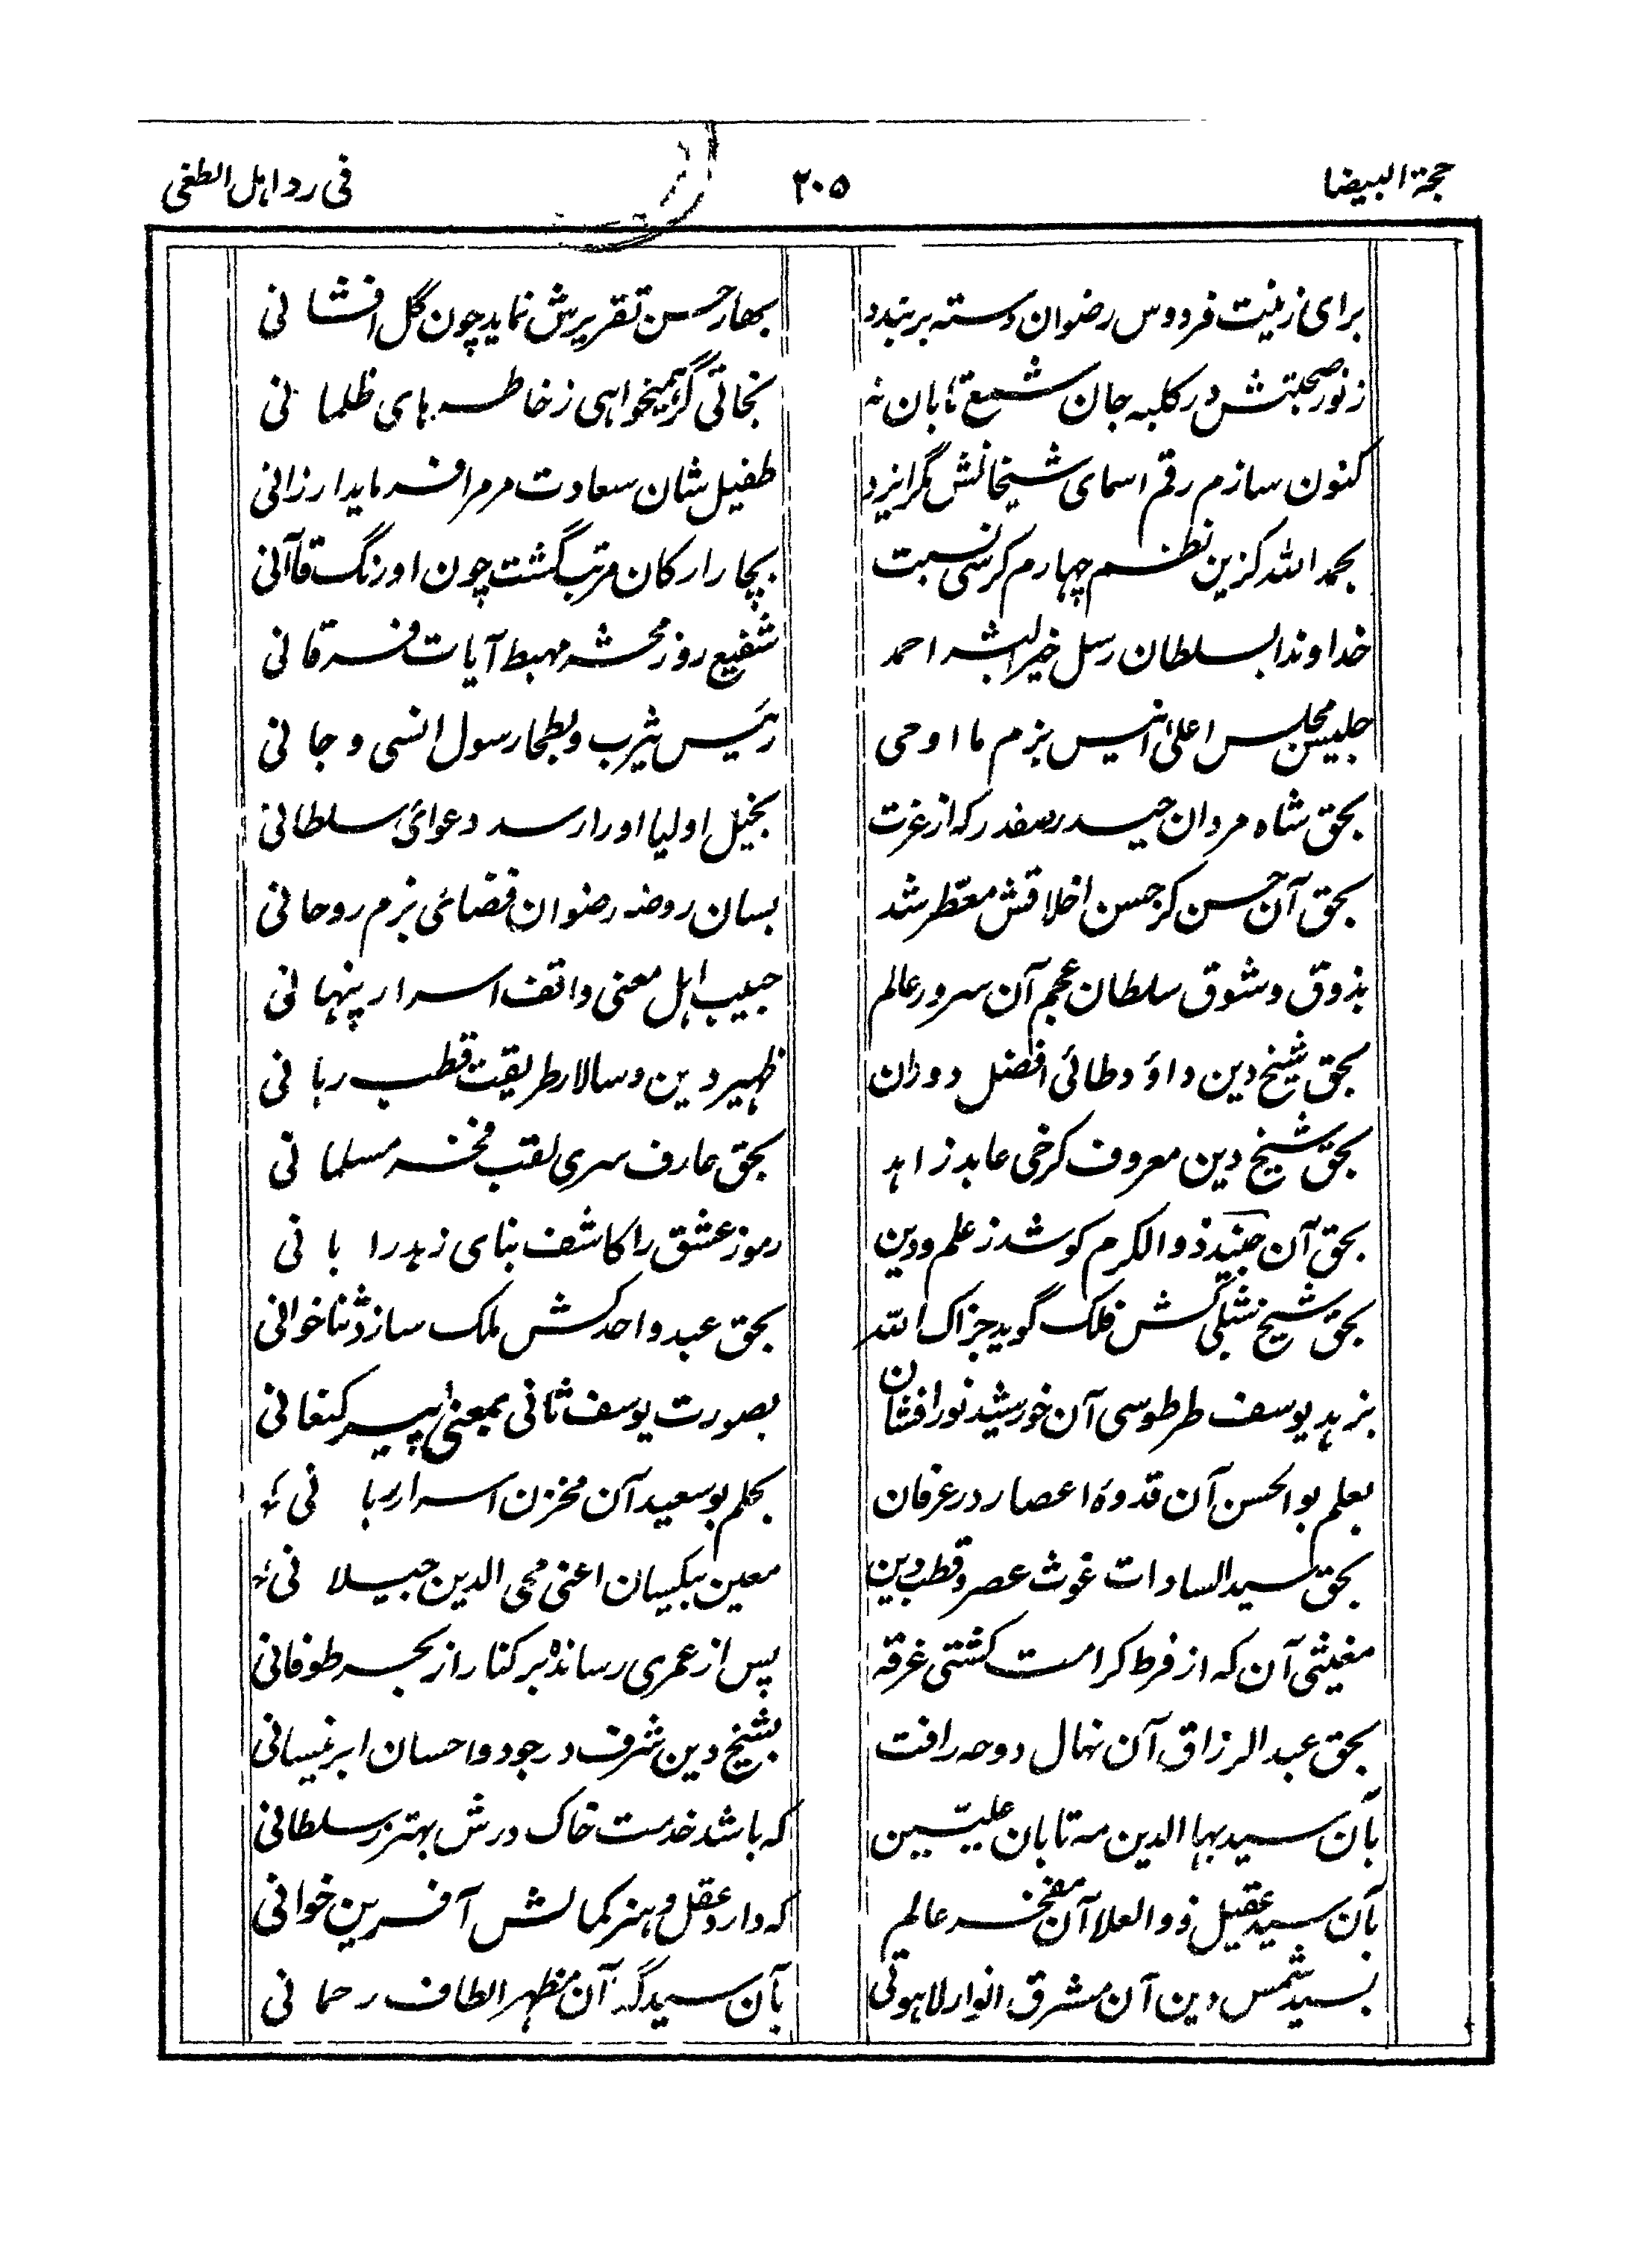 حجة البیضا ۲۰۵ فی رد اہل الطغی
برای زینت فردوس رضوان دسته بربندد بهار حسن تقریرش نماید چون گل افشانی
ز نور صحبتش در کلبه جان شمع تابان نه نجاتی گر همیخواهی ز خاطر های ظلمانی
کنون سازم رقم اسمای شیخانش مگر ایزد طفیل شان سعادت مر مرا فرماید ارزانی
بحمد الله کزین نظم چهارم کرسی نسبت بچار ارکان مرتب گشت چون اورنگ قاآنی
خداوندا بسلطان رسل خیر البشر احمد شفیع روز محشر مهبط آیات فرقانی
جلیس مجلس اعلی انیس بزم ما اوحی رئیس یثرب و بطحا رسول انسی و جانی
بحق شاه مردان حیدر صفدر که از عزت بخیل اولیا او را رسد دعوائ سلطانی
بحق آن حسن کز حسن اخلاقش معطّر شد بسان روضه رضوان فضائی بزم روحانی
بذوق و شوق سلطان عجم آن سرور عالم حبیب اہل معنی واقف اسرار پنہانی
بحق شیخ دین داؤد طائی افضل دوران ظہیر دین و سالار طریقت قطب ربانی
بحق شیخ دین معروف کرخی عابد زاہد بحق عارف سری لقب فخر مسلمانی
بحق آن جنید ذو الکرم کو شد ز علم و دین رموز عشق را کاشف بنای زہد را بانی
بحق شیخ شبلی کش فلک گوید جزاک الله بحق عبد واحد کش ملک سازد ثنا خوانی
بزہد یوسف طرطوسی آن خورشید نور افشان بصورت یوسف ثانی بمعنی پیر کنعانی
بعلم بو الحسن آن قدوۂ اعصار در عرفان بحلم بو سعید آن مخزن اسرار ربانی
بحق سید السادات غوث عصر و قطب دین معین بیکسان اعنی محی الدین جیلانی
مغیثی آن که از فرط کرامت کشتی غرقه پس از عمری رسانده بر کنار از بحر طوفانی
بحق عبد الرزاق آن نہال دوحه رافت بشیخ دین شرف در جود و احسان ابر نیسانی
بآن سید بہا الدین مه تابان علیّین که باشد خدمت خاک درش بہتر ز سلطانی
بآن سید عقیل ذو العلا آن مفخر عالم که دارد عقل و ہنر کمالش آفرین خوانی
بسید شمس دین آن مشرق انوار لاہوتی بآن سید گدا آن مظہر الطاف رحمانی